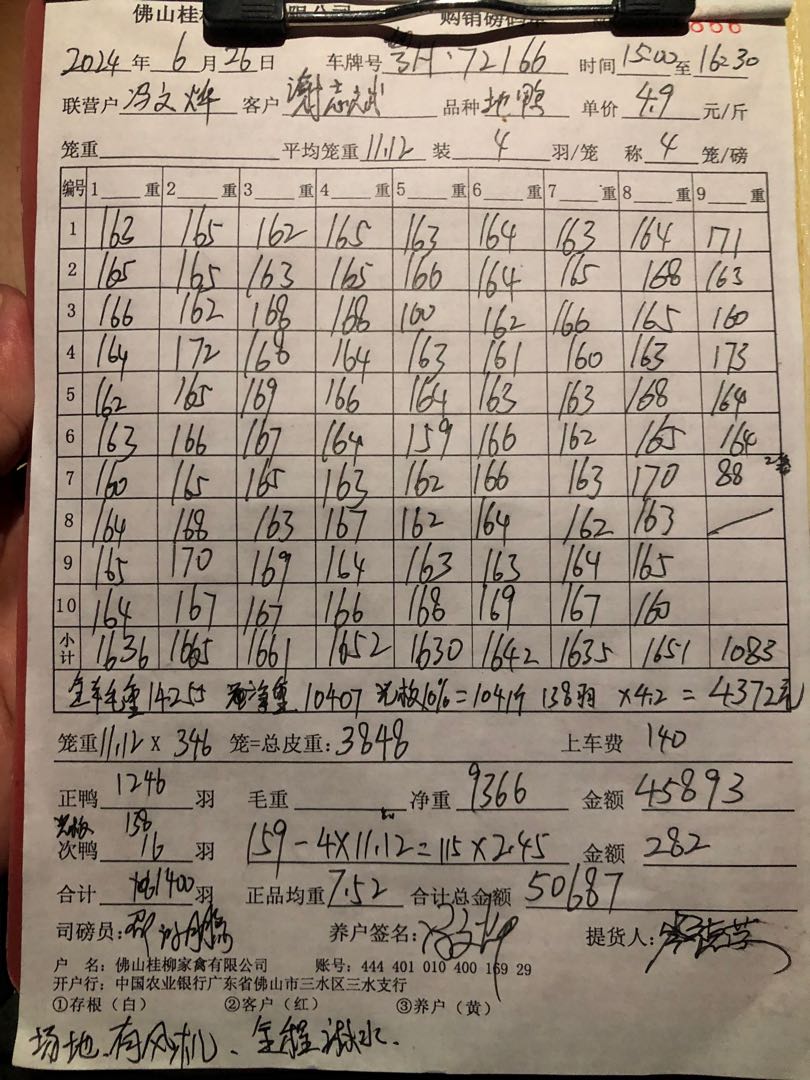 佛山桂柳 限公司 购销磅码单
666
2024 年 6 月 26 日 车牌号 H·72166 时间 15:00 至 16:30
联营户 冯文烨 客户 谢志斌 品种 地鸭 单价 4.9 元/斤
笼重 平均笼重 11.12 装 4 羽/笼 称 4 笼/磅
编号 1 重 2 重 3 重 4 重 5 重 6 重 7 重 8 重 9 重
1 163 165 162 165 163 164 163 164 171
2 165 165 163 165 166 164 165 168 163
3 166 162 168 168 160 162 166 165 160
4 164 172 168 164 163 161 160 163 173
5 162 165 169 166 164 163 163 168 164
6 163 166 167 164 159 166 162 165 164
7 160 165 165 163 162 166 163 170 88
8 164 168 163 167 162 164 162 163
9 165 170 169 164 163 163 164 165
10 164 167 167 166 168 169 167 160
小计 1636 1665 1661 1652 1630 1642 1635 1651 1083
全车毛重 14255 净重 10407 光板10%=1041斤 138羽 ×4.2=4372元
笼重 11.12 × 346 笼=总皮重: 3848 上车费 140
正鸭 1246 羽 毛重 净重 9366 金额 45893
光板 138
次鸭 16 羽 159-4×11.12=115×2.45 金额 282
合计 1400 羽 正品均重 7.52 合计总金额 50687
司磅员: 养户签名: 提货人:
户 名: 佛山桂柳家禽有限公司 账号: 444 401 010 400 169 29
开户行: 中国农业银行广东省佛山市三水区三水支行
①存根(白) ②客户(红) ③养户(黄)
场地、有风机、全程淋水.